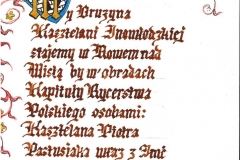 My Druzyna
Kasztelani Inowłodzkiej
stajemy w Nowem nad
Wisłą by w obradach
Kapituły Rycerstwa
Polskiego osobami:
Kasztelana Piotra
uraz z Imć